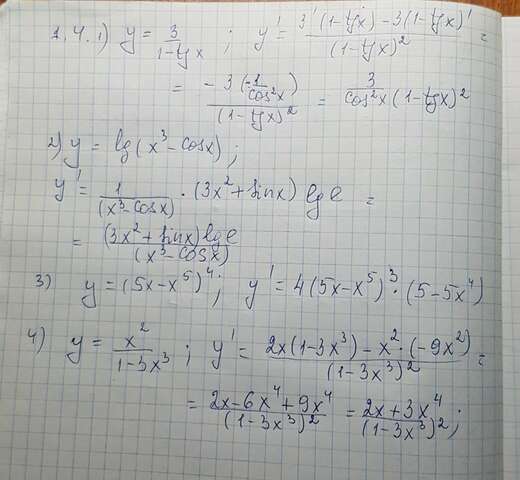 1.4. 1) y = 3/(1-tgx) ; y' = (3'(1-tgx) - 3(1-tgx)')/(1-tgx)² =
= (-3(-1/cos²x))/(1-tgx)² = 3/(cos²x(1-tgx)²)
2) y = lg(x³-cosx);
y' = 1/(x³-cosx) · (3x²+sinx) lg e =
= ((3x²+sinx)lg e)/(x³-cosx)
3) y = (5x-x⁵)⁴; y' = 4(5x-x⁵)³·(5-5x⁴)
4) y = x²/(1-3x³) ; y' = (2x(1-3x³)-x²·(-9x²))/(1-3x³)² =
= (2x-6x⁴+9x⁴)/(1-3x³)² = (2x+3x⁴)/(1-3x³)²;